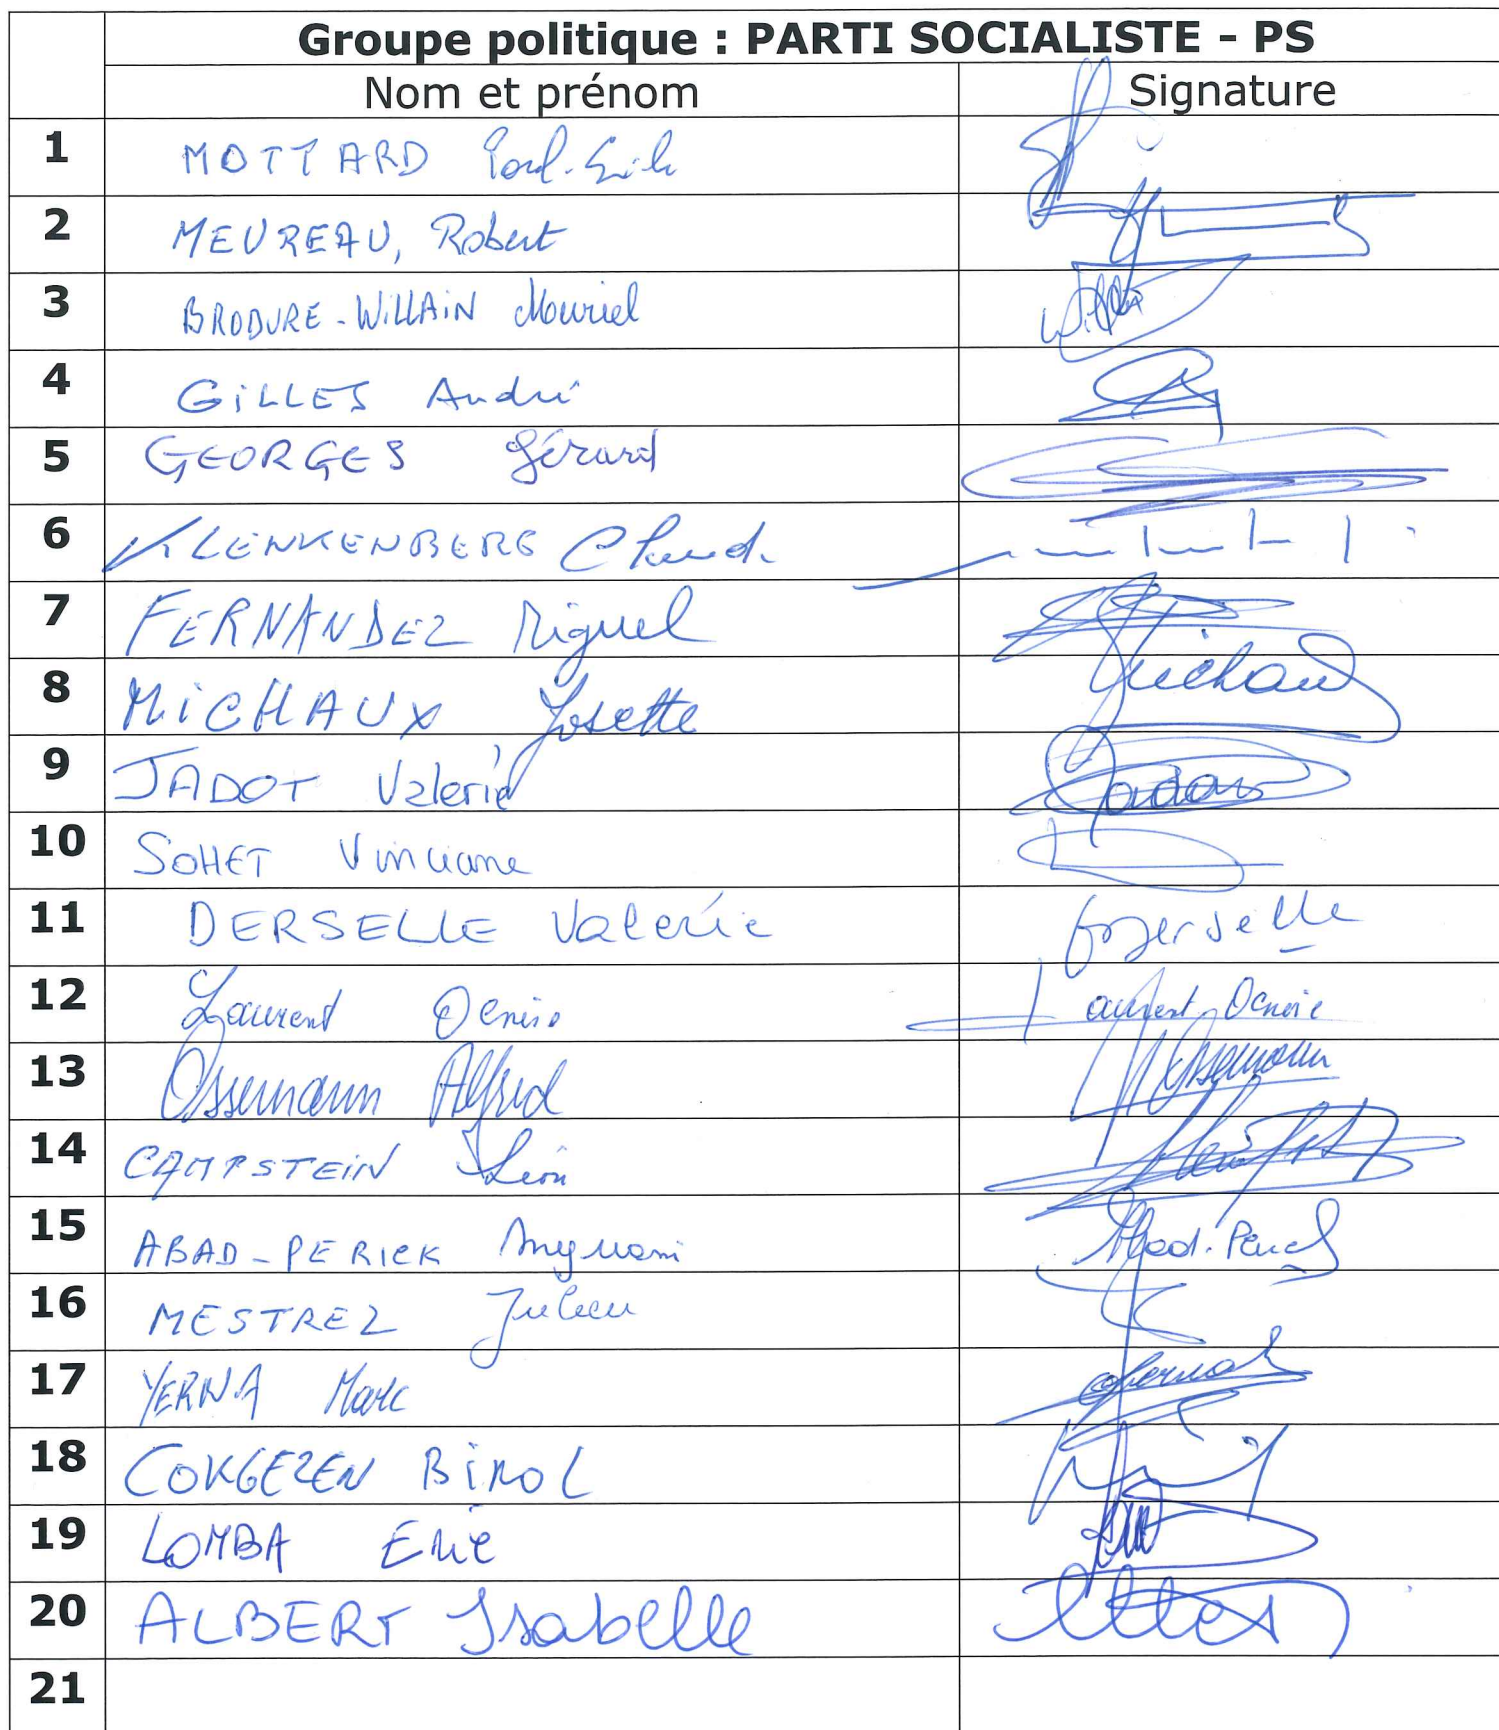 Groupe politique : PARTI SOCIALISTE - PS
Nom et prénom Signature
1 MOTTARD Paul-Emile
2 MEUREAU, Robert
3 BRODURE-WiLLAiN Muriel
4 GiLLES André
5 GEORGES Gérard
6 KLENKENBERG Claude
7 FERNANDEZ Miguel
8 MiCHAUX Josette Michaux
9 JADOT Valerie Jadot
10 SOHET Vinciane
11 DERSELLE Valerie Derselle
12 Laurent Denise Laurent Denise
13 Ossemann Alfred Ossemann
14 CAMPSTEiN Léon
15 ABAD-PERICK Myriam Abad-Perick
16 MESTREZ Julien
17 YERNA Marc
18 COKGEZEN BiROL
19 LOMBA Eric
20 ALBERT Isabelle
21